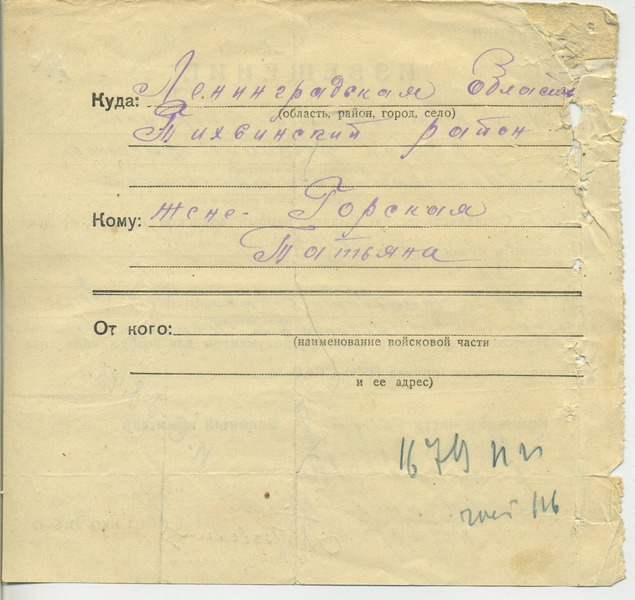 Куда: Ленинградская Область
(область, район, город, село)
Тихвинский район
Кому: жене- Горская
Татьяна
От кого:
(наименование войсковой части
и ее адрес)